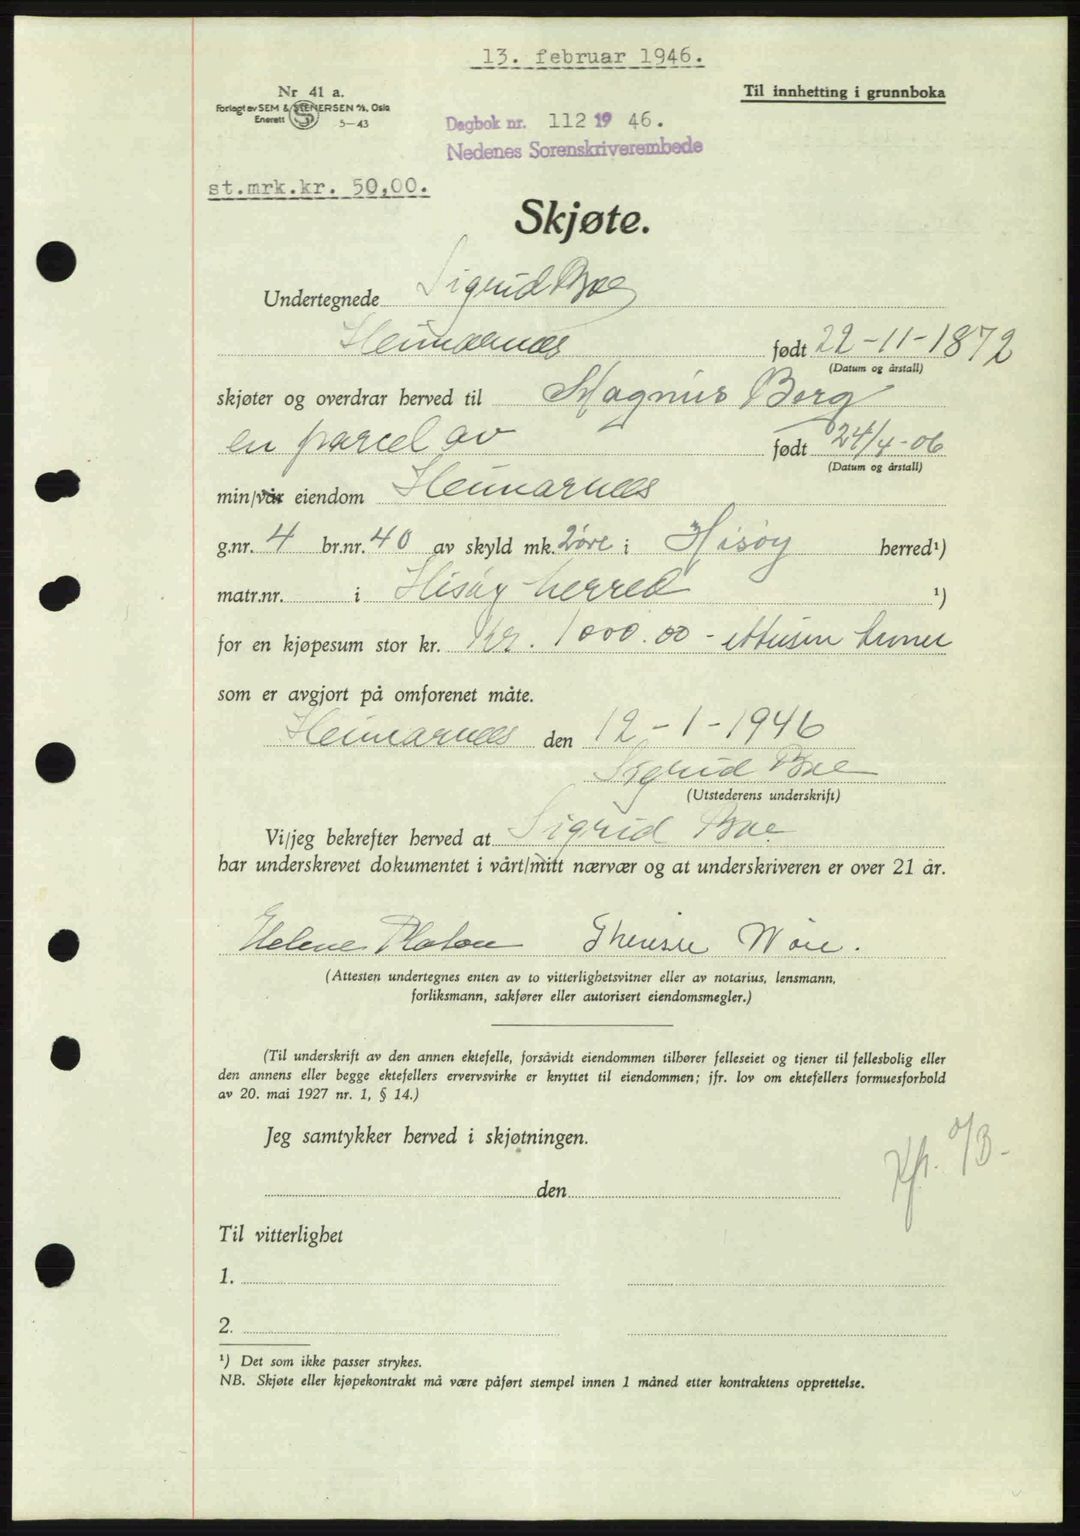 13. februar 1946.
Nr 41 a.
Forlagt av SEM & STENERSEN A/S, Oslo
Enerett S 5-43
Til innhefting i grunnboka
Dagbok nr. 112 19 46.
Nedenes Sorenskriverembede
st.mrk.kr. 50,00.
Skjøte.
Undertegnede Sigrid Boe
Heimarnes født 22-11-1872
(Datum og årstall)
skjøter og overdrar herved til Magnus Berg
en parcel av født 24/4-06
(Datum og årstall)
min/vår eiendom Heimarnes
g.nr. 4 br.nr. 40 av skyld mk. 2 øre i Hisøy herred¹)
matr.nr. i Hisøy herred ¹)
for en kjøpesum stor kr. Kr. 1000.00 - ettusen kroner
som er avgjort på omforenet måte.
Heimarnes den 12-1-1946
Sigrid Boe
(Utstederens underskrift)
Vi/jeg bekrefter herved at Sigrid Boe
har underskrevet dokumentet i vårt/mitt nærvær og at underskriveren er over 21 år.
Helene
(Attesten undertegnes enten av to vitterlighetsvitner eller av notarius, lensmann,
forliksmann, sakfører eller autorisert eiendomsmegler.)
(Til underskrift av den annen ektefelle, forsåvidt eiendommen tilhører felleseiet og tjener til fellesbolig eller
den annens eller begge ektefellers ervervsvirke er knyttet til eiendommen; jfr. lov om ektefellers formuesforhold
av 20. mai 1927 nr. 1, § 14.)
Jeg samtykker herved i skjøtningen.
den
Til vitterlighet
1.
2.
¹) Det som ikke passer strykes.
NB. Skjøte eller kjøpekontrakt må være påført stempel innen 1 måned etter kontraktens opprettelse.